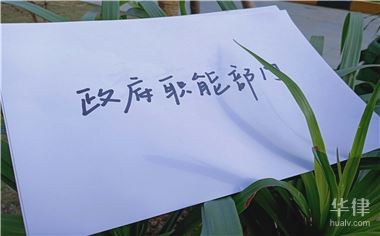 政府职能部门
华律
hualv.com